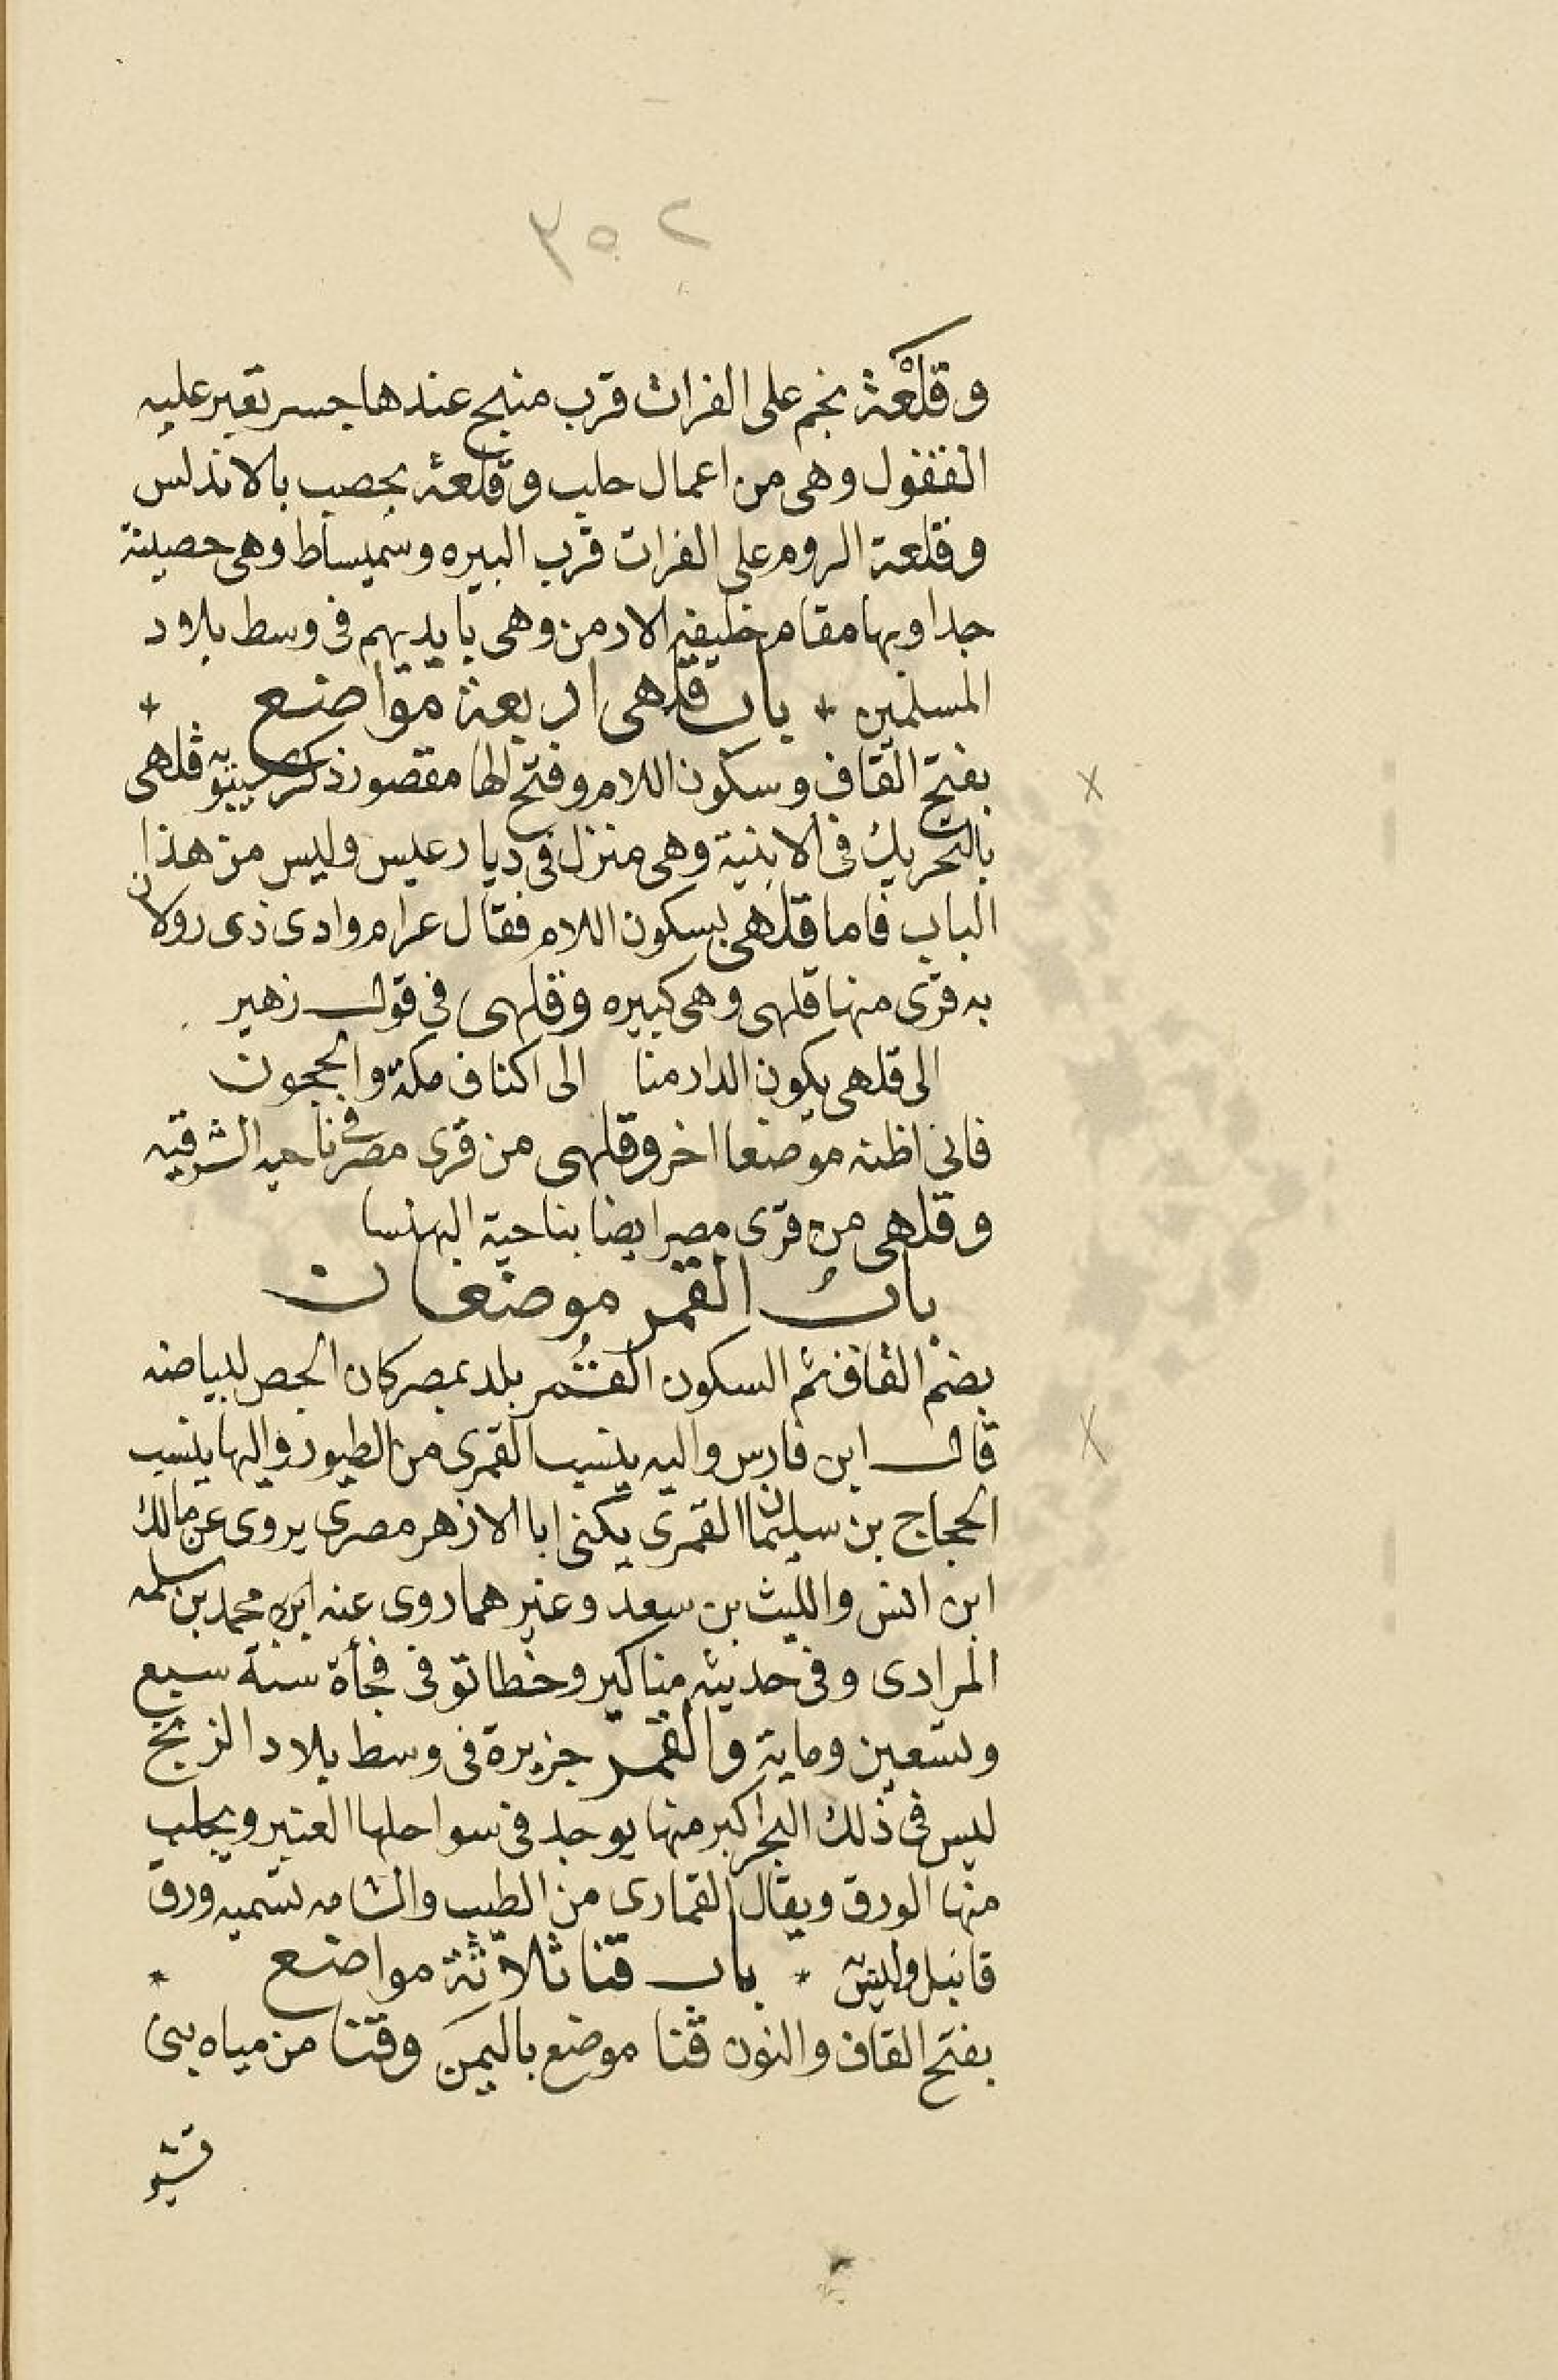 ٣٥٢
وقلْعة نجم على الفرات قرب منبج عندها جسر تعبر عليه
القفول وهى من اعمال حلب وقلعة يحصب بالاندلس
وقلعة الروم على الفرات قرب البيره وسميساط وهى حصينة
جدا وبها مقام خليفة الارمن وهى بايديهم فى وسط بلاد
المسلمين * باب قلهى اربعة مواضع *
بفتح القاف وسكون اللام وفتح الها مقصور ذكر سيبويه قلهى
بالتحريك فى الابنية وهى منزل فى ديار عبس وليس من هذا
الباب فاما قلهى بسكون اللام فقال عرام وادى ذى رولان
به قرى منها قلهى وهى كبيره وقلهى في قول زهير
الى قلهى يكون الدار منا الى اكناف مكة والحجون
فانى اظنه موضعا اخر وقلهى من قرى مصر فى ناحيه الشرقيه
وقلهى من قرى مصر ايضا بناحية البهنسا
بابُ القمر موضعان
بضم القاف ثم السكون القُمر بلد بمصر كان الجص لبياضه
قال ابن فارس واليه ينسب القمرى من الطيور واليها ينسب
الحجاج بن سليمان القمرى يكنى ابا الازهر مصرى يروى عن مالك
ابن انس والليث بن سعد وغيرهما روى عنه ابن محمد بن سلمه
المرادى وفى حديثه مناكير وخطا توفى فجأة سنة سبع
وتسعين وماية والقمر جزيرة فى وسط بلاد الزنج
ليس فى ذلك البحر اكبر منها يوجد فى سواحلها العنبر ويجلب
منها الورق ويقال القمارى من الطيب والشامه تسميه ورق
قانبل وليس * باب قنا ثلاثة مواضع *
بفتح القاف والنون قنا موضع باليمن وقنا من مياه بنى
قشير